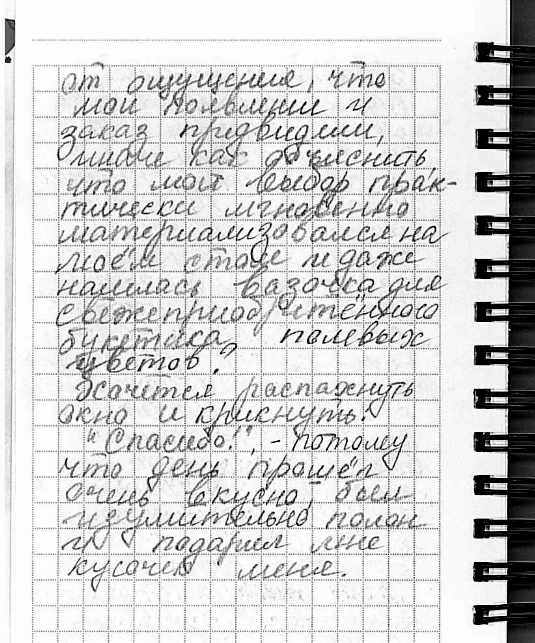 от ощущения, что
мои появлении и
заказ предвидели,
иначе как объяснить,
что мой выбор прак-
тически мгновенно
материализовался на
моём столе и даже
нашлась вазочка для
свежеприобретённого
букетика полевых
цветов?
Хочется распахнуть
окно и крикнуть:
"Спасибо!", - потому
что день прошёл
очень вкусно, был
изумительно полон
и подарил мне
кусочек меня.